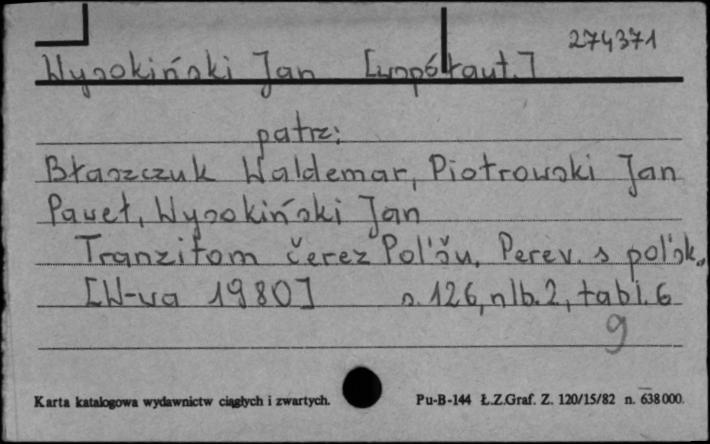 274371
Wysokiński Jan [współaut.]
patrz:
Błaszczuk Waldemar, Piotrowski Jan
Paweł, Wysokiński Jan
Tranzitom čerez Pol'šu. Perev. s pol'sk.
[W-wa 1980] s. 126, nlb. 2, tabl. 6
g
Karta katalogowa wydawnictw ciągłych i zwartych. Pu-B-144 Ł.Z.Graf. Z. 120/15/82 n. 638000.